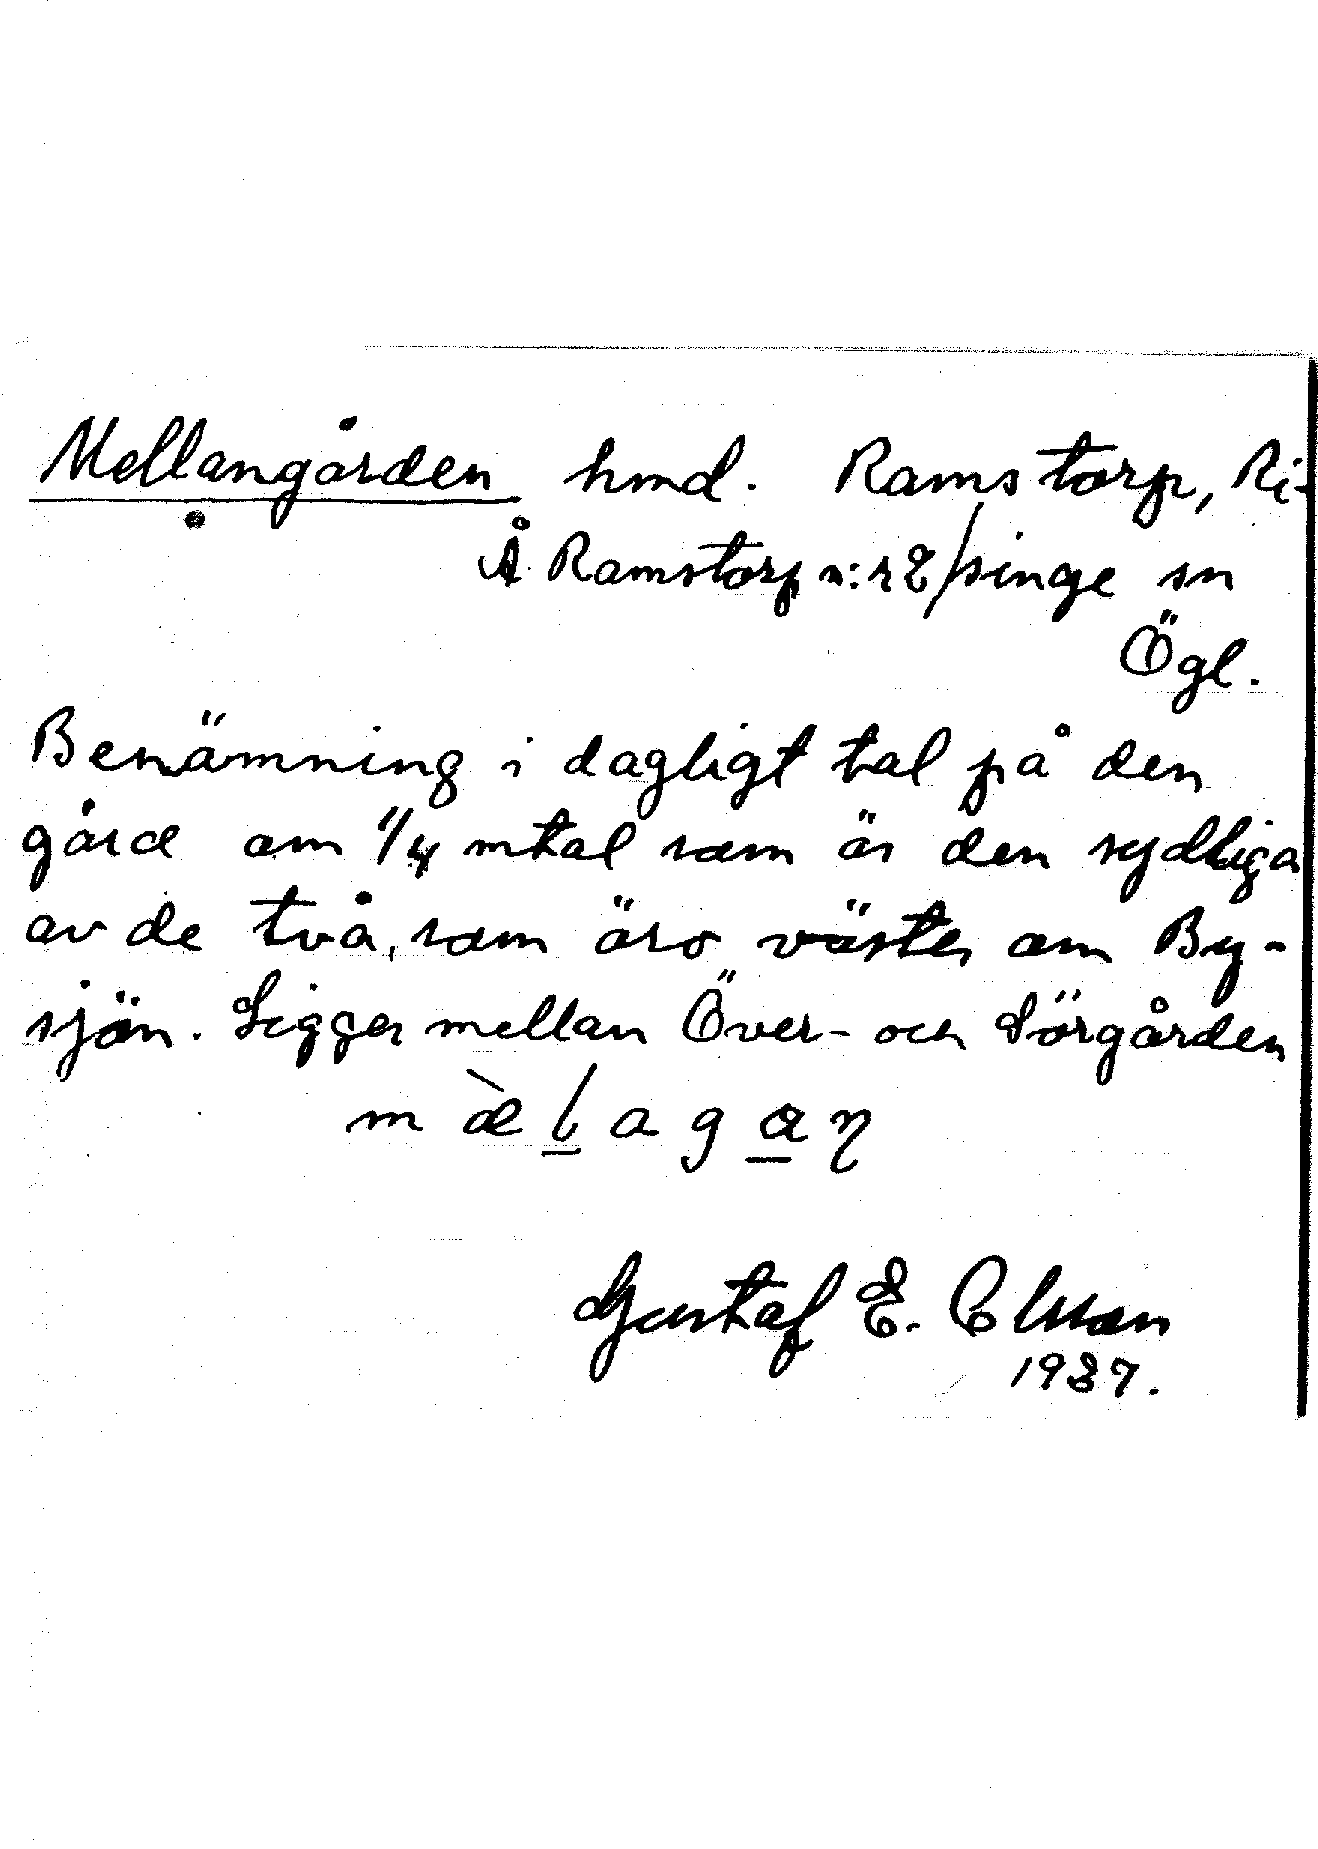 Mellangården hmd. Ramstorp, Ri-
Å Ramstorp n:r 2/singe sn
Ögl.
Benämning i dagligt tal på den
gård om 1/4 mtal som är den sydliga
av de två, som äro väster om By-
sjön. Ligger mellan Över- och Sörgården
Gustaf E. Olsson
1937.